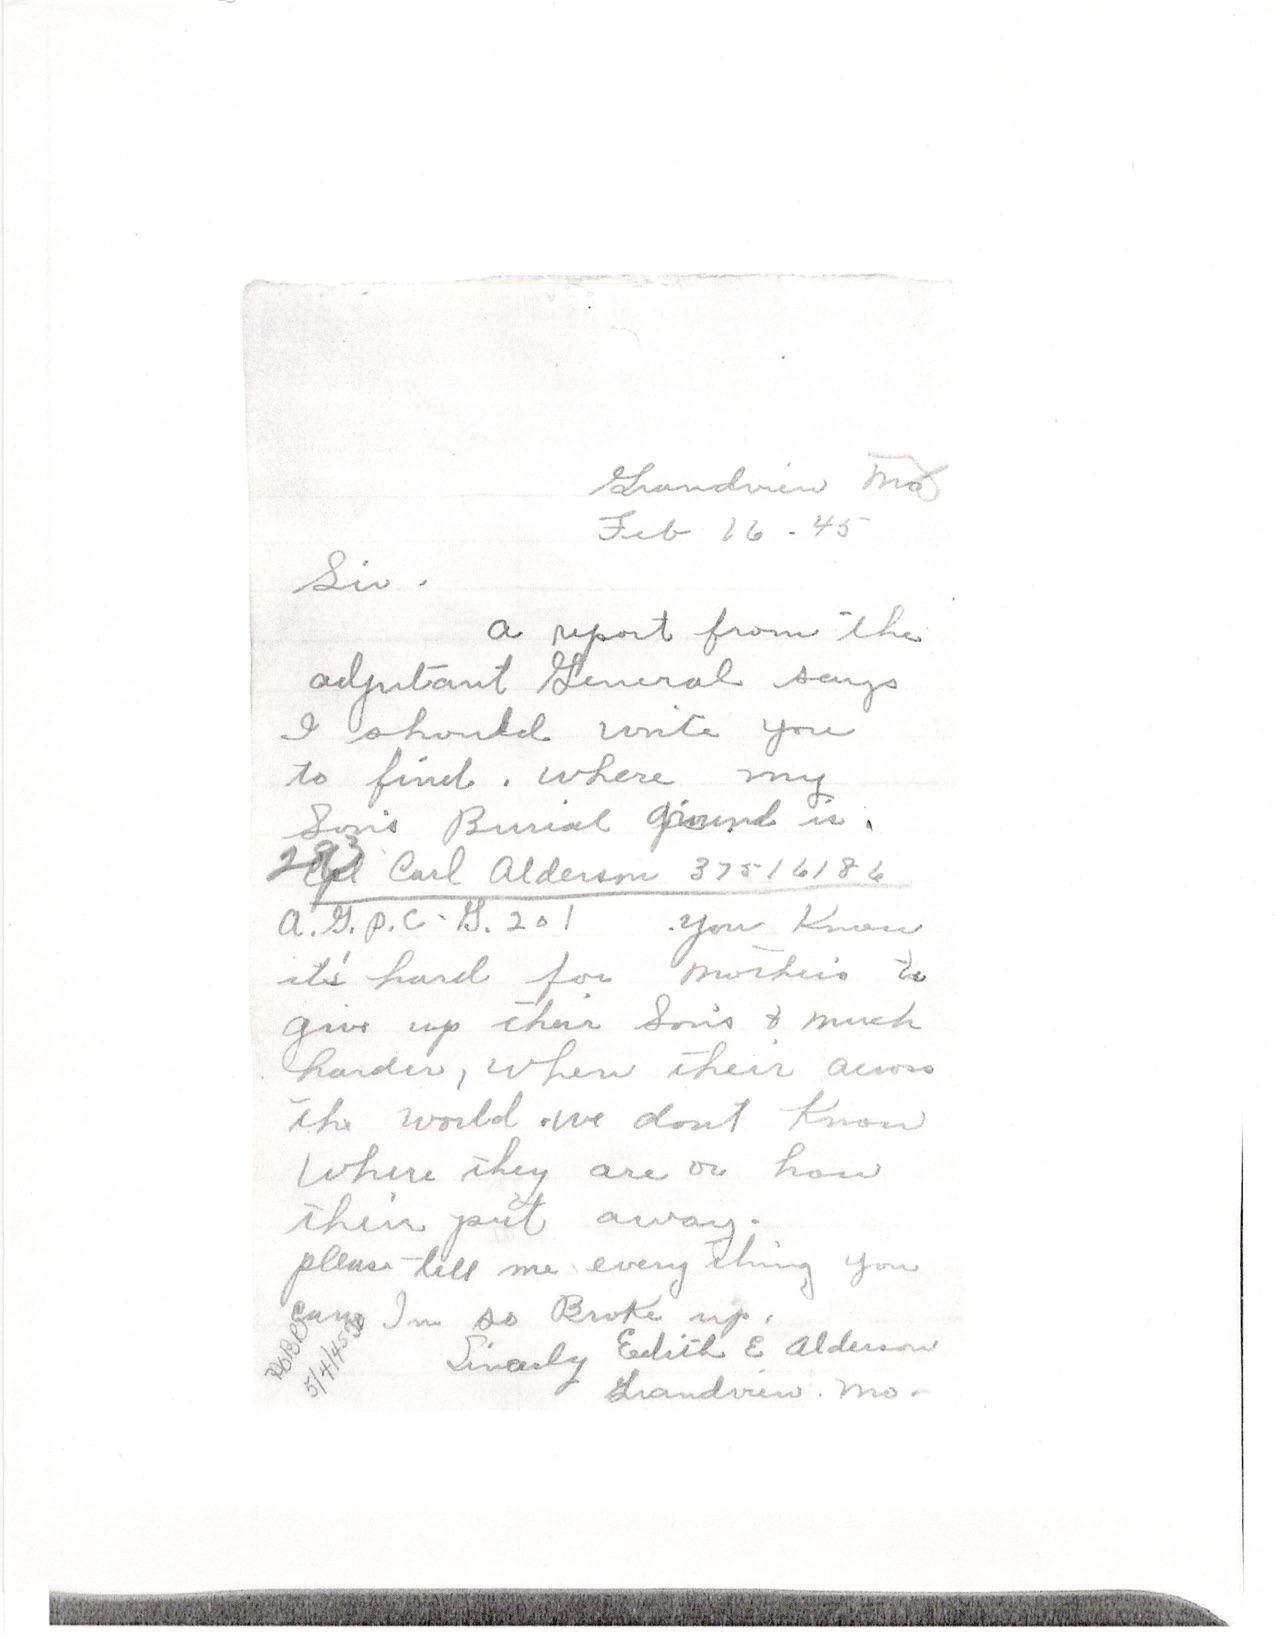 Grandview Mo
Feb 16 - 45
Sir.
a report from the
adjutant General says
I should write you
to find. where my
Son's Burial ground is.
293
Cpl Carl Alderson 37516186
A.G.P.C - G. 201 you Know
it's hard for Mothers to
give up their Sons & much
harder, when their across
the world. we dont Know
Where they are or how
their put away.
please tell me every thing you
can. Im so Broke up.
Sincerly Edith E Alderson
Grandview. Mo.
5/4/45